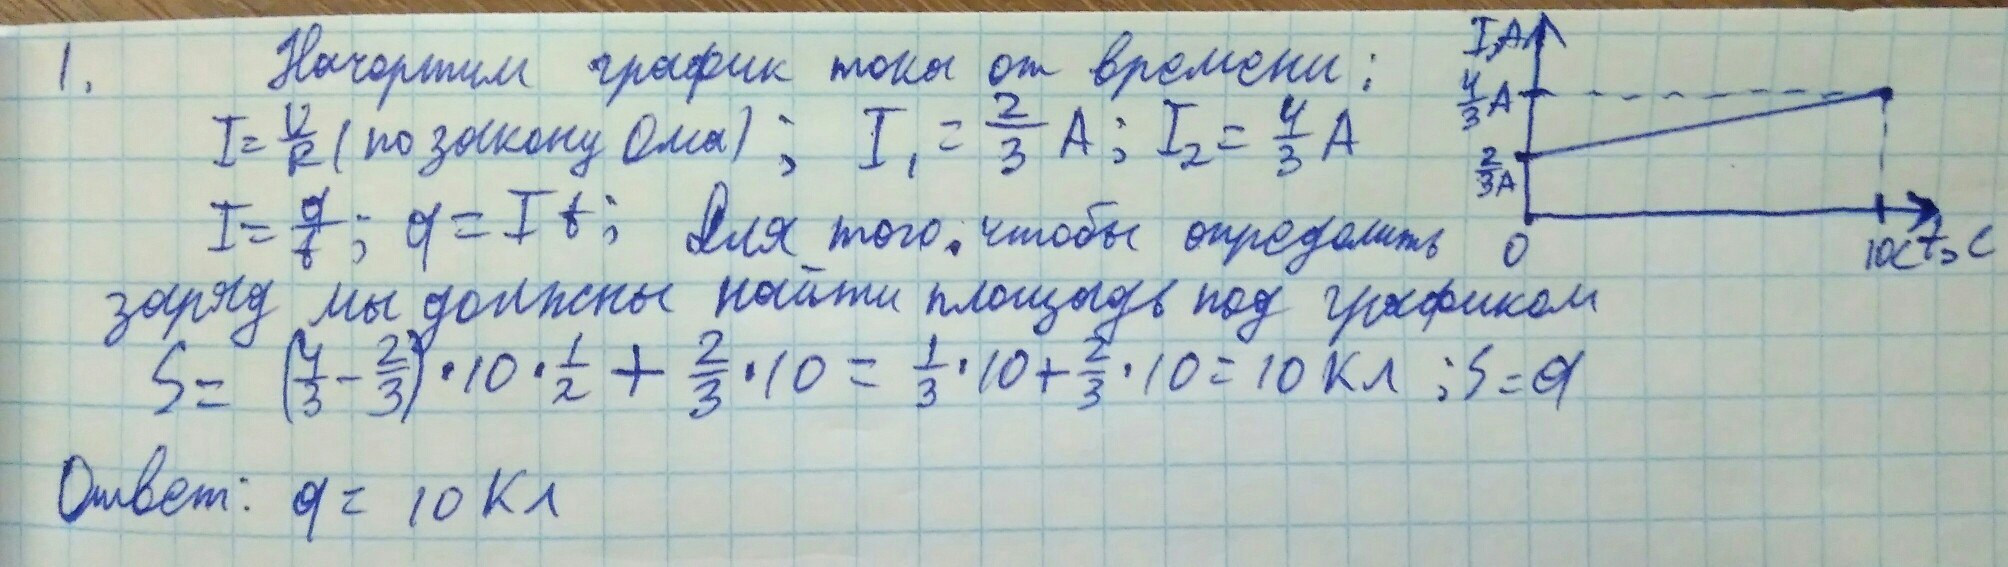 1. Начертим график тока от времени:
I = U/R (по закону Ома); I₁ = 2/3 А; I₂ = 4/3 А
I = q/t; q = It; Для того, чтобы определить
заряд мы должны найти площадь под графиком
S = (4/3 - 2/3) · 10 · 1/2 + 2/3 · 10 = 1/3 · 10 + 2/3 · 10 = 10 Кл; S = q
Ответ: q = 10 Кл
I, А
4/3 А
2/3 А
0
10с
t, с